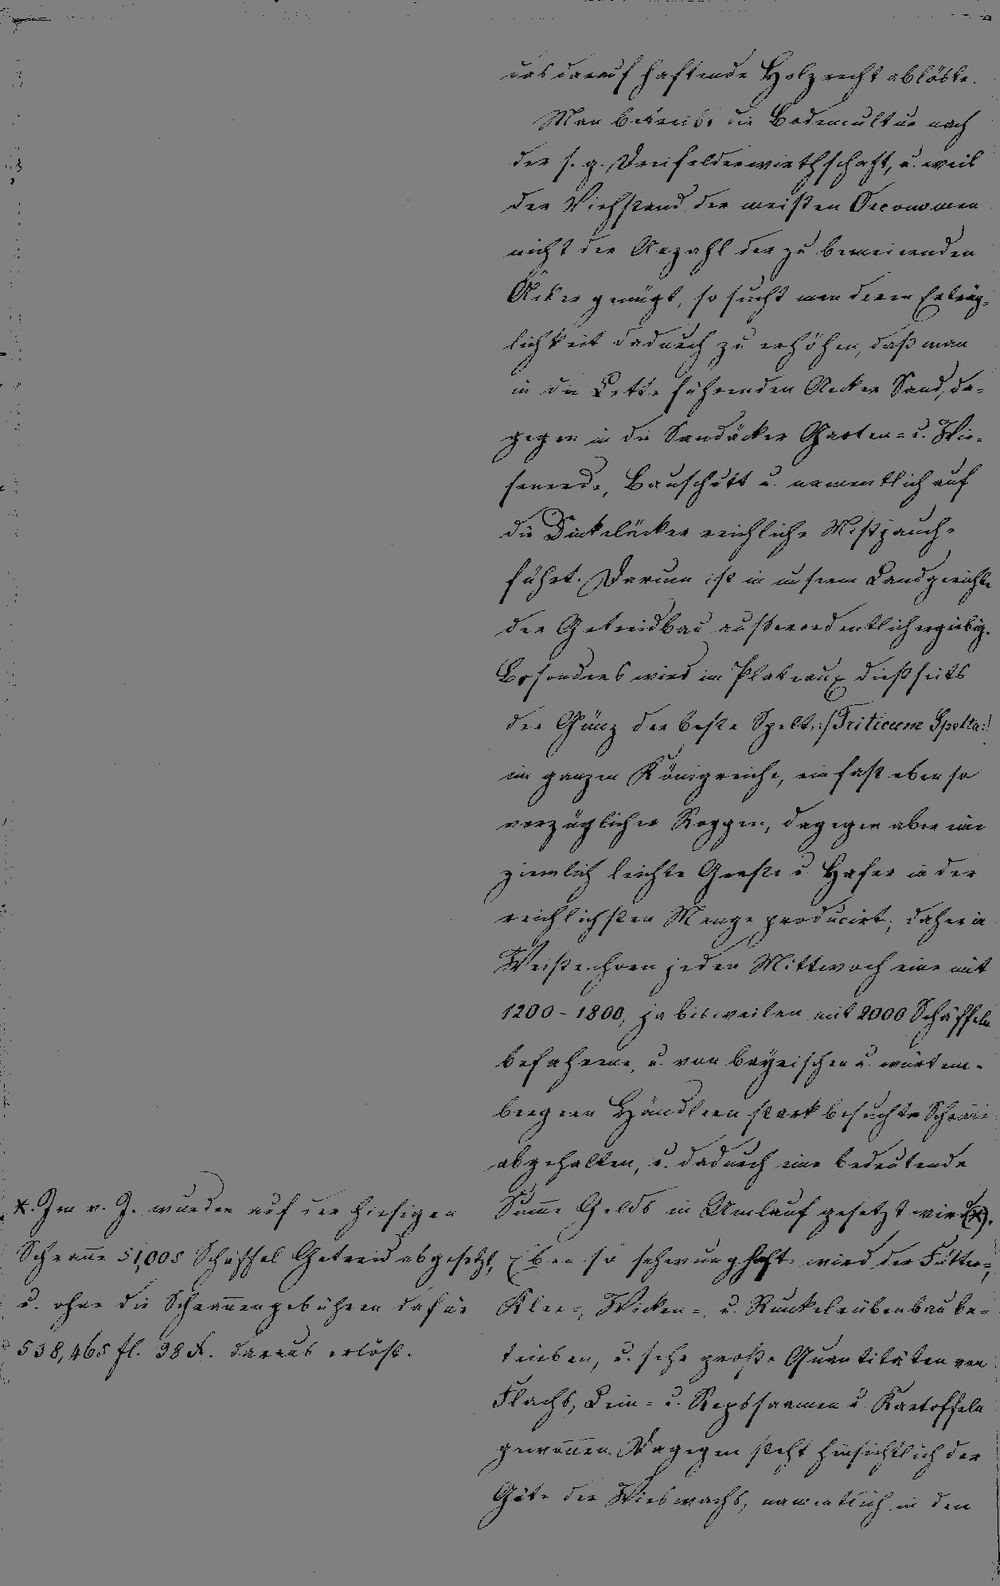 das darauf haftende Holzrecht ablöste.
Man betreibt die Bodencultur nach
der s. g. Dreifelderwirthschaft, u. weil
der Viehstand der meisten Oeconomen
nicht der Anzahl der zu bemeiernden
Äcker genügt, so sucht man deren Erträg-
lichkeit dadurch zu erhöhen, daß man
in die Lette führenden Aecker Sand, da-
gegen in die Sandäcker Garten- u. Wie-
senerde, Bauschutt u. namentlich auf
die Dinkeläcker reichliche Mistjauche
führt. Darum ist in unserm Landgerichte
der Getreidbau außerordentlich ergiebig.
Besonders wird im Plateaux diesseits
der Günz der beste Spelt :/Triticum Spelta:/
im ganzen Königreiche, ein fast eben so
vorzüglicher Roggen, dagegen aber eine
ziemlich leichte Gerste u. Hafer in der
reichlichsten Menge producirt; daher in
Weißenhorn jeden Mittwoch eine mit
1200 - 1800, ja bisweilen mit 2000 Schäffeln
befahrene, u. von bayrischen u. würtem-
bergern Händlern stark besuchte Schranne
abgehalten, u. dadurch eine bedeutende
Summe Gelds in Umlauf gesetzt wird (x).
Eben so schwunghaft wird der Futter-,
Klee-, Wicken-, u. Runkelrübenbau be-
trieben, u. sehr große Quantitäten von
Flachs, Lein- u. Repssaamen u. Kartoffeln
gewonnen. Dagegen steht hinsichtlich der
Güte der Wieswachs, namentlich in den
x. Im v. J. wurden auf der hiesigen
Schranne 51,005 Schäffel Getreid abgesetzt,
u. ohne die Schrannengebühren dafür
538,465 fl. 38 x. daraus erlöst.